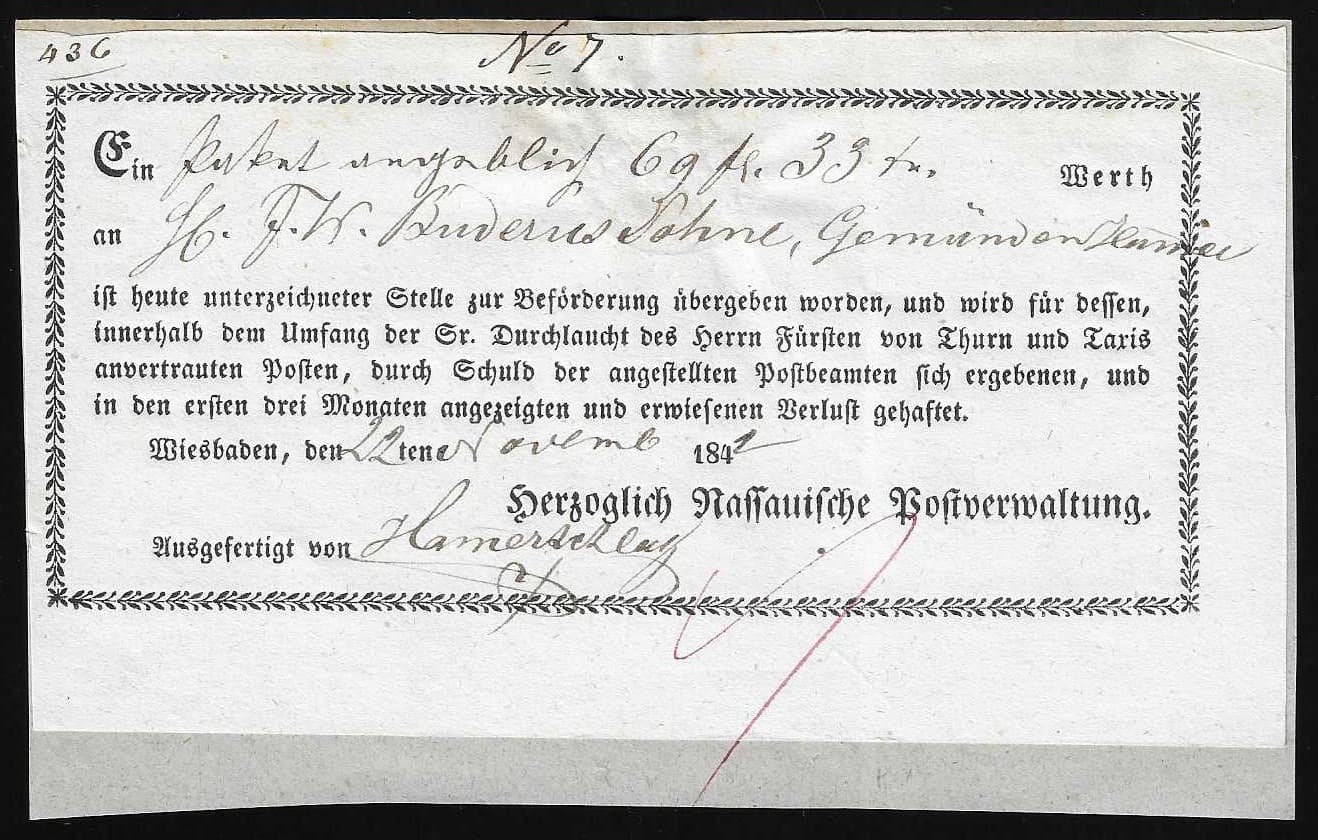 436 No 7.
Ein Paket angeblich 69 fl. 33 kr. Werth
an H. J. W. Buderus Söhne, Gemünden
ist heute unterzeichneter Stelle zur Beförderung übergeben worden, und wird für dessen,
innerhalb dem Umfang der Sr. Durchlaucht des Herrn Fürsten von Thurn und Taxis
anvertrauten Posten, durch Schuld der angestellten Postbeamten sich ergebenen, und
in den ersten drei Monaten angezeigten und erwiesenen Verlust gehaftet.
Wiesbaden, den 22ten Novemb 1842
Herzoglich Nassauische Postverwaltung.
Ausgefertigt von Hamerschlag